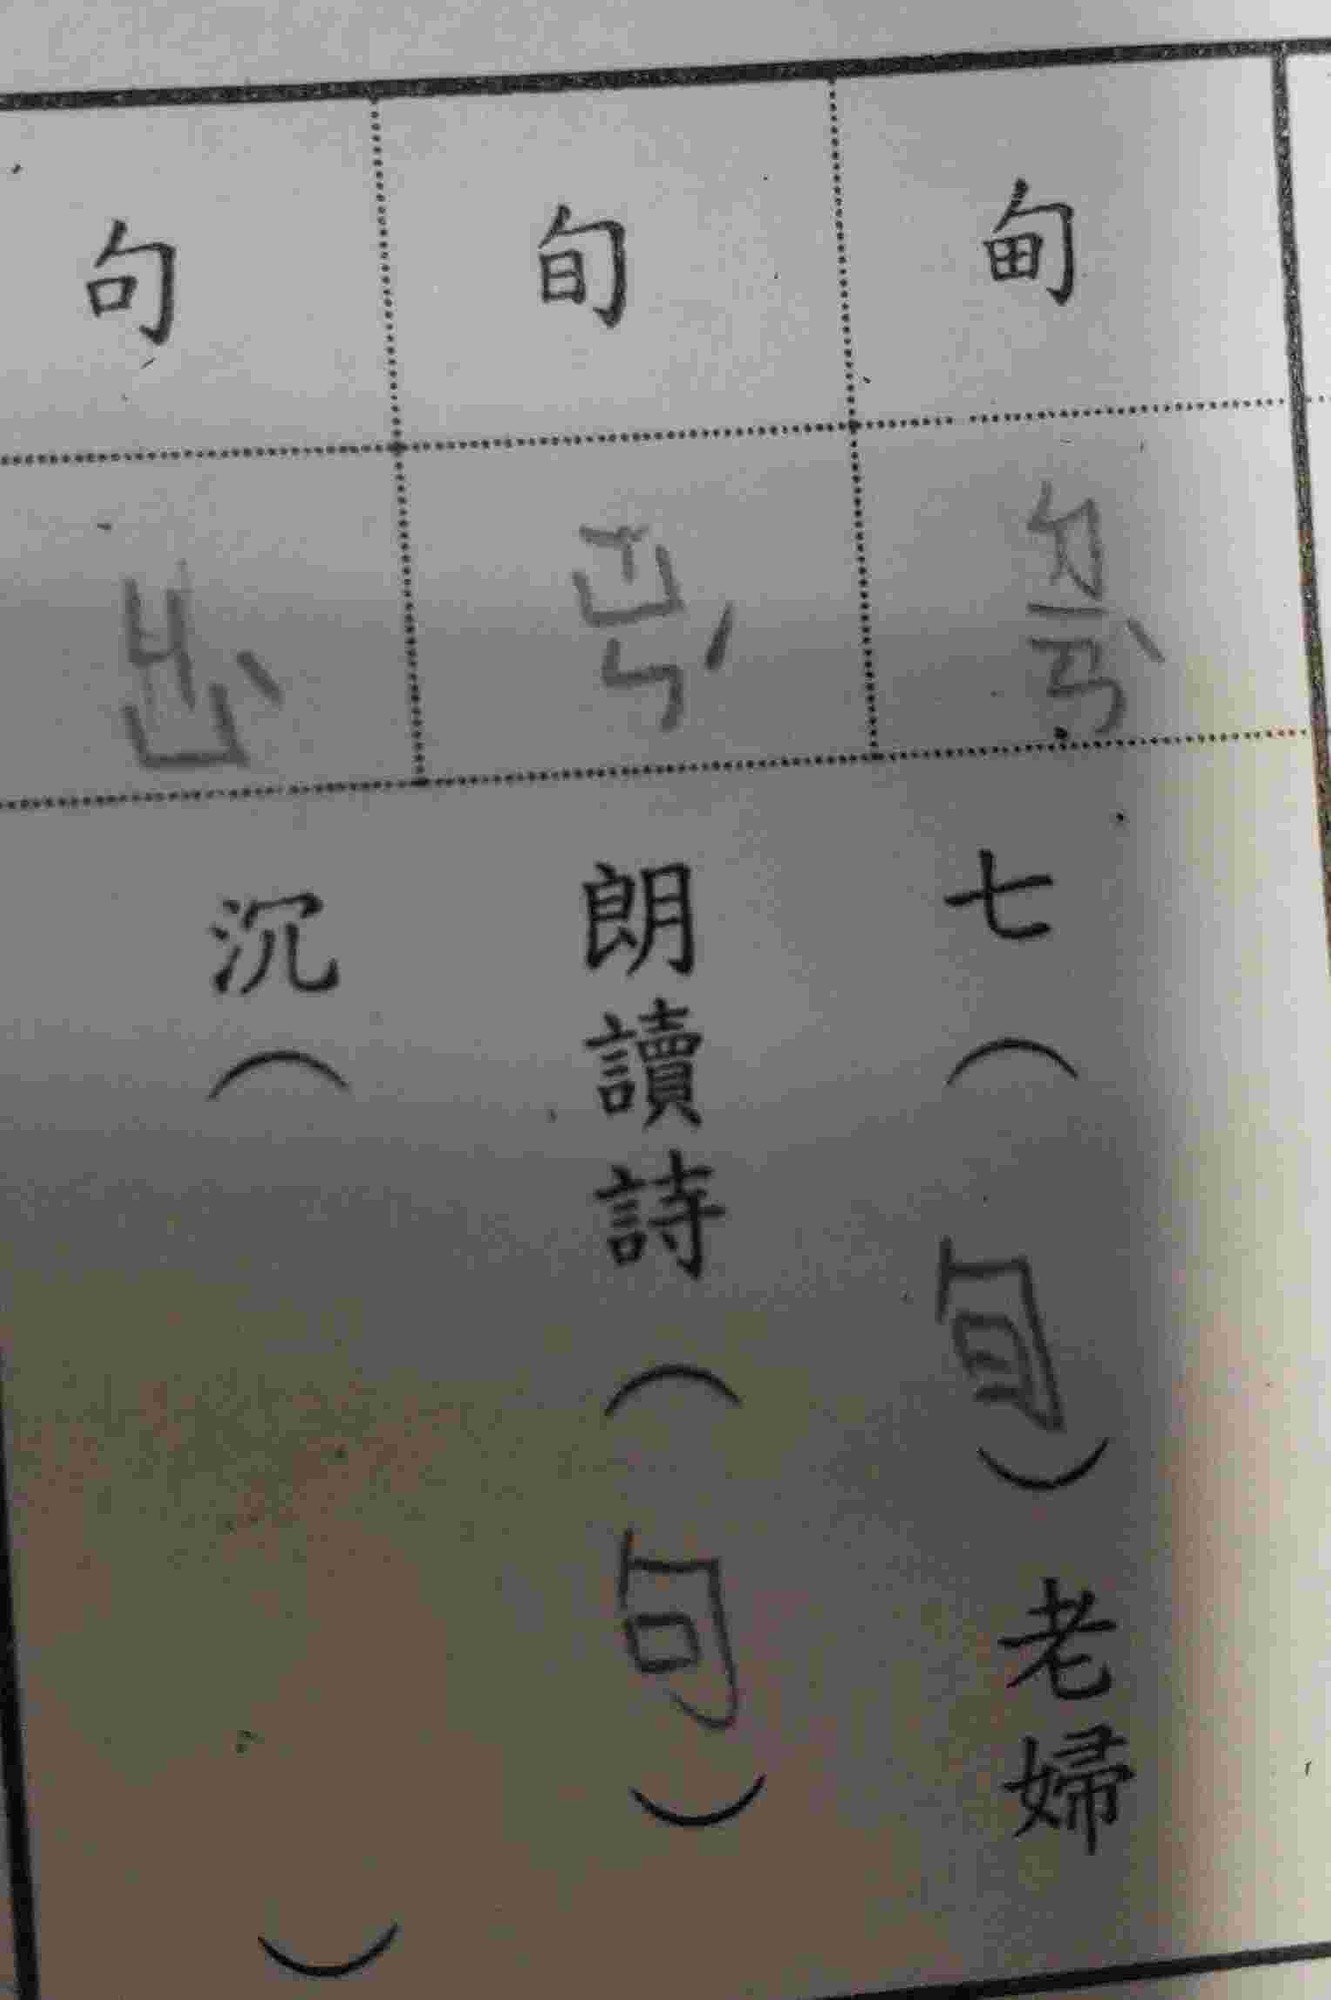 甸
ㄉㄧㄢˋ
七(旬)老婦
旬
ㄒㄩㄣˊ
朗讀詩(句)
句
ㄐㄩˋ
沉( )